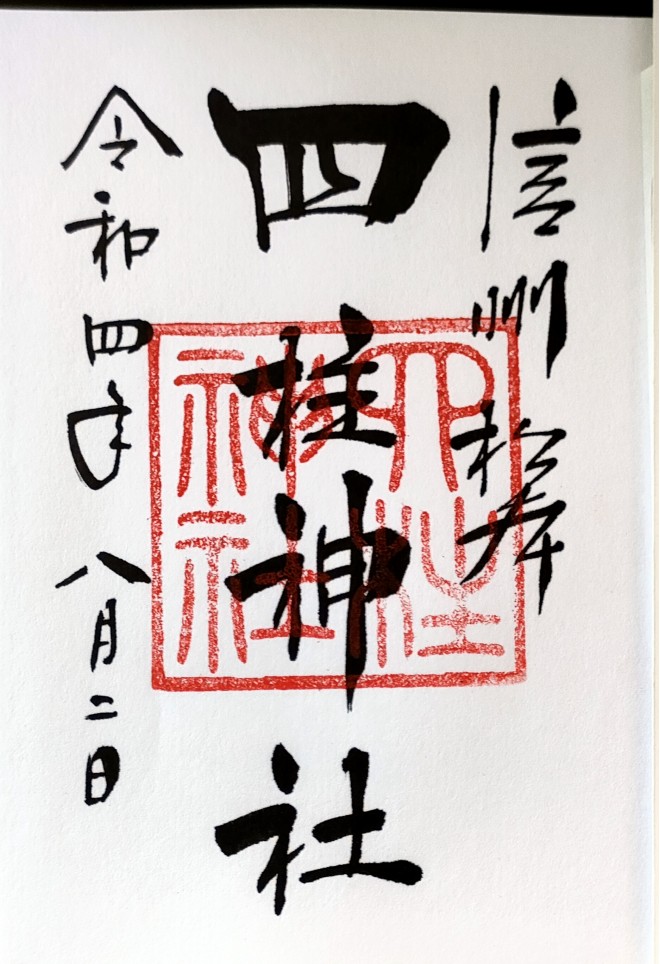 信州 松本
四柱神社
四柱神社
令和四年 八月二日